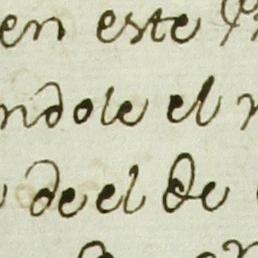 en este
ndole el
de el de